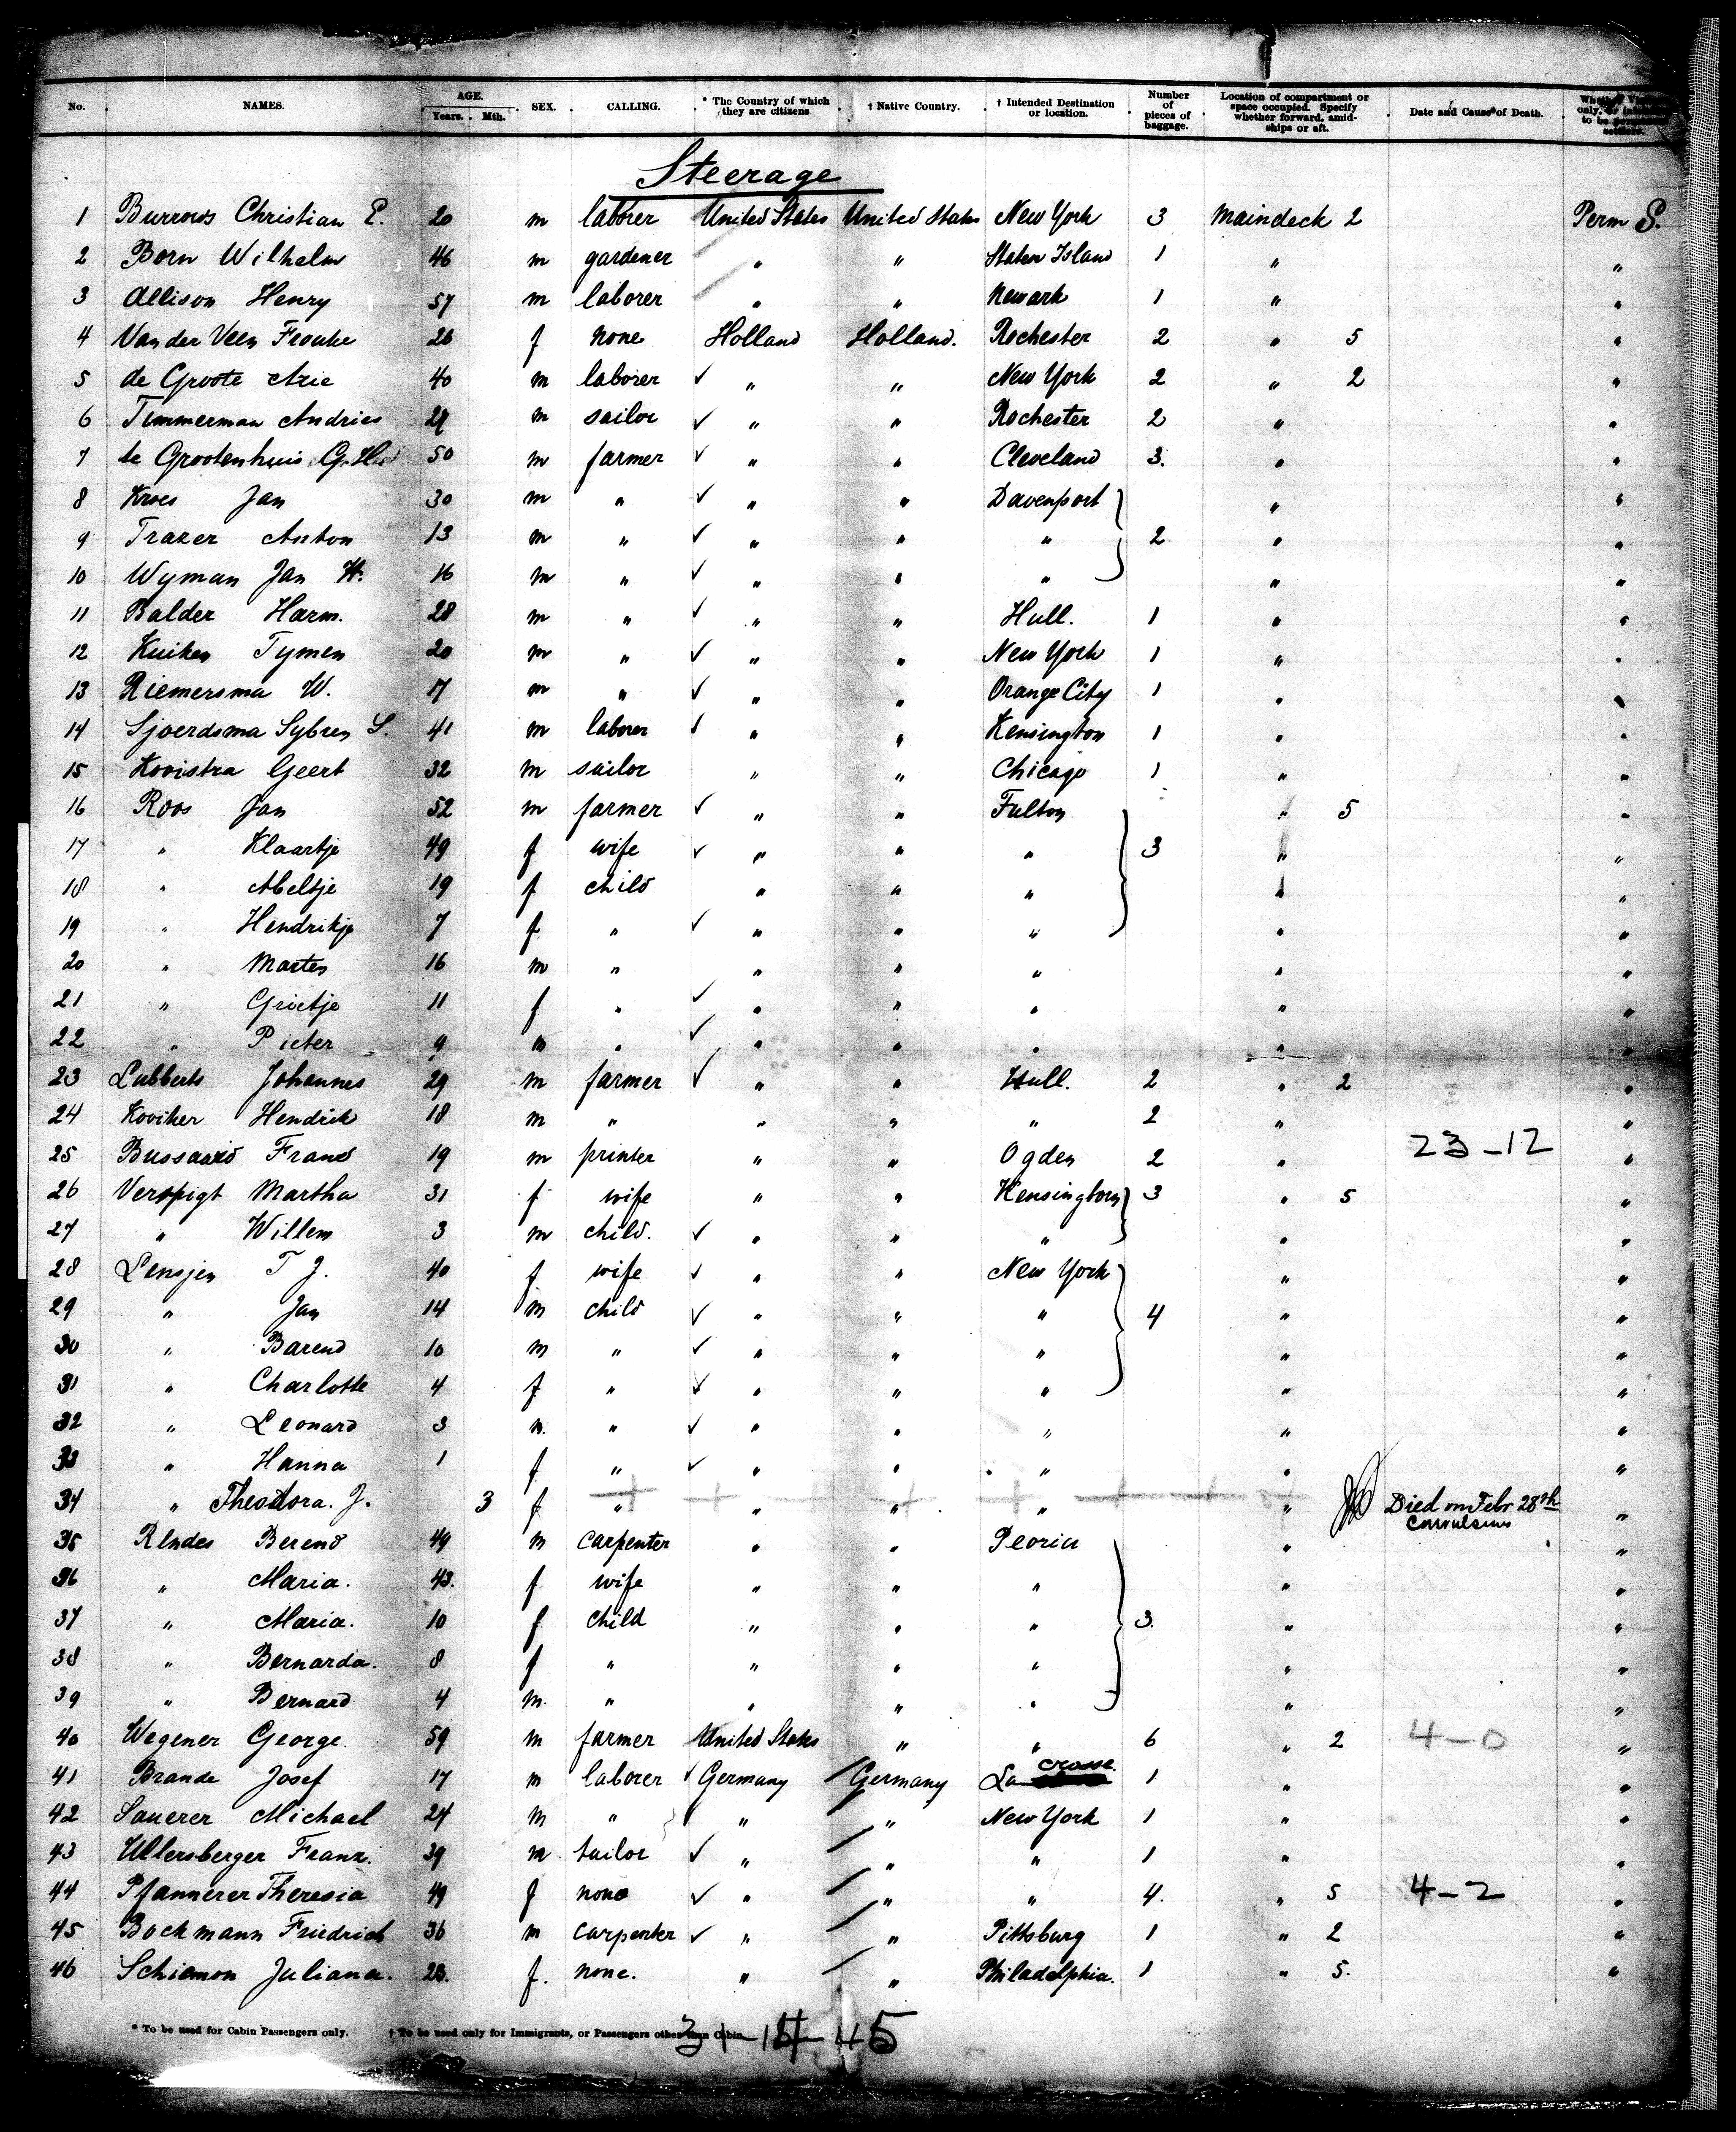 No. NAMES. AGE. Years. Mth. SEX. CALLING. * The Country of which they are citizens † Native Country. † Intended Destination or location. Number of pieces of baggage. Location of compartment or space occupied. Specify whether forward, amidships or aft. Date and Cause of Death.
Steerage
1 Burrows Christian P. 20 m laborer United States United States New York 3 Maindeck 2 Perm S.
2 Born Wilhelm 46 m gardener " " Staten Island 1 " "
3 Allison Henry 57 m laborer " " Newark 1 " "
4 Van der Veen Frouke 26 f none Holland Holland. Rochester 2 " 5 "
5 de Groote Arie 40 m laborer ✓ " " New York 2 " 2 "
6 Timmerman Andries m sailor ✓ " " Rochester 2 " "
7 te Grootenhuis G. H. 50 m farmer ✓ " " Cleveland 3. " "
8 Kroes Jan 30 m " ✓ " " Davenport " "
9 Traxer Anton 13 m " ✓ " " " 2 " "
10 Wyman Jan H. 16 m " ✓ " " " " "
11 Balder Harm. 28 m " ✓ " " Hull. 1 " "
12 Kuiken Tymen 20 m " ✓ " " New York 1 " "
13 Riemersma W. 17 m " ✓ " " Orange City 1 " "
14 Sjoerdsma Sybren S. 41 m laborer ✓ " " Kensington 1 " "
15 Kooistra Geert 32 m sailor " " Chicago 1 " "
16 Roos Jan 52 m farmer ✓ " " Fulton " 5 "
17 " Klaartje 49 f wife ✓ " " " 3 " "
18 " Abeltje 19 f child " " " " "
19 " Hendrikje 7 f " ✓ " " " " "
20 " Marten 16 m " " " " " "
21 " Grietje 11 f " ✓ " " " " "
22 " Pieter 9 m " ✓ " " " " "
23 Lubberts Johannes 29 m farmer ✓ " " Hull. 2 " 2 "
24 Kooiker Hendrik 18 m " " " " 2 " "
25 Bussaard Frans 19 m printer " " Ogden 2 " 23-12 "
26 Verspigt Martha 31 f wife " " Kensington 3 " 5 "
27 " Willem 3 m child. ✓ " " " " "
28 Lensjen T J. 40 f wife ✓ " " New York " "
29 " Jan 14 m child ✓ " " " 4 " "
30 " Barend 10 m " ✓ " " " " "
31 " Charlotte 4 f " ✓ " " " " "
32 " Leonard 3 m. " ✓ " " " " "
33 " Hanna 1 f " ✓ " " " " "
34 " Theodora. J. 3 f " " " " " Died on Febr 28th "
Convulsions
35 Rendes Berend 49 m carpenter " " Peoria " "
36 " Maria. 43. f wife " " " " "
37 " Maria. 10 f child " " " 3. " "
38 " Bernarda. 8 f " " " " " "
39 " Bernard 4 m. " " " " " "
40 Wegener George 59 m farmer United States " " 6 " 2 4-0 "
41 Brande Josef 17 m laborer ✓ Germany Germany La crosse. 1 " "
42 Sauerer Michael 24 m " ✓ " " New York 1 " "
43 Ullersberger Franz. 39 m tailor ✓ " " " 1 " "
44 Pfannerer Theresia 49 f none ✓ " " " 4. " 5 4-2 "
45 Bockmann Friedrich 36 m carpenter ✓ " " Pittsburg 1 " 2 "
46 Schiemon Juliana. 23. f. none. " " Philadelphia. 1 " 5. "
* To be used for Cabin Passengers only. † To be used only for Immigrants, or Passengers other than Cabin.